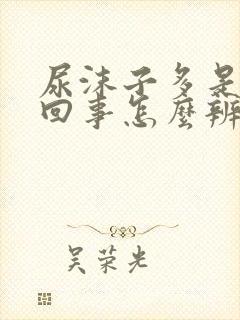 尿沫子多是
回事怎麼辦
吴荣光